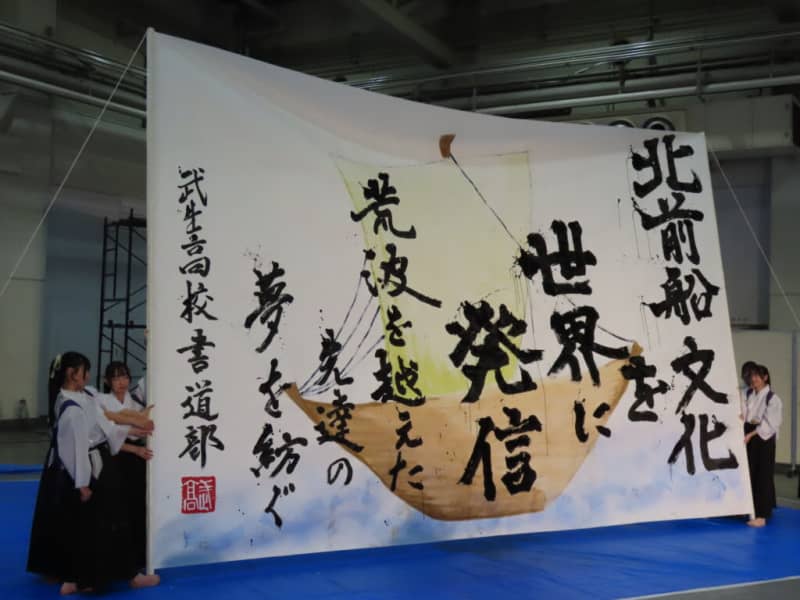 北前船文化を
世界に
発信
荒波を越えた
先達の
夢を紡ぐ
武生高校書道部
武高